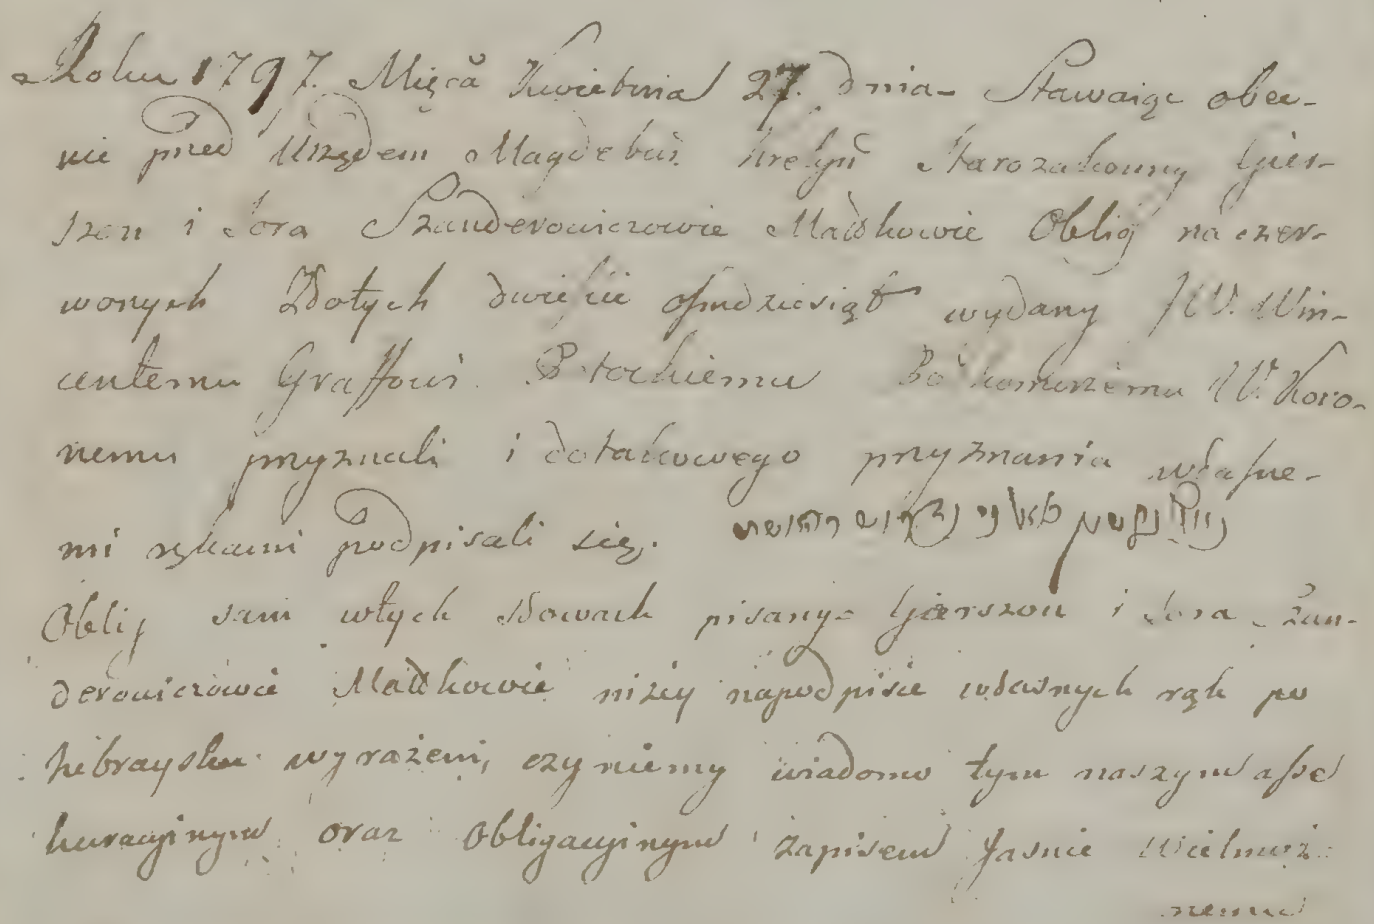 Roku 1797. Mięcâ Kwietnia 27. dnia Stawaiąc obec-
nie przed Urzędem Magdebur. Starozakonny Gier-
szon i Sora Szanderowiczowie Małżkowie Oblig na czer-
wonych Złotych dwieście ośmdziesiąt wydany JW. Win-
centemu Graffowi Potockiemu Podkomorzemu W. Koro-
nemu przyznali i dotakowego przyznania własne-
mi rękami podpisali się.
Oblig sam wtych Słowach pisany= Gierszon i Sora Szan-
derowiczowie Małżkowie niżey napodpisie własnych rąk po
hebraysku wyrażeni, czyniemy wiadomo tym naszym asse
kuracyinym oraz Obligacyinym zapisem Jasnie Wielmoż-
nemu